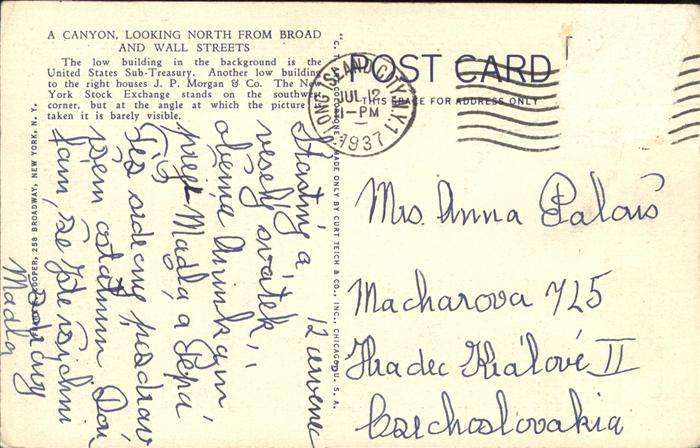 A CANYON, LOOKING NORTH FROM BROAD
AND WALL STREETS
The low building in the background is the
United States Sub-Treasury. Another low building
to the right houses J. P. Morgan & Co. The New
York Stock Exchange stands on the southwest
corner, but at the angle at which the picture
taken it is barely visible.
COOPER, 258 BROADWAY, NEW YORK, N. Y.
MADE ONLY BY CURT TEICH & CO., INC., CHICAGO, U. S. A.
POST CARD
THIS SPACE FOR ADDRESS ONLY
LONG ISLAND CITY, N.Y. 1
JUL 12
-PM
1937
12 července
Štastný a
veselý svátek,
oběma Aninkám
přejí Madla, a Pepa
Též srdečný pozdrav
všem ostatním
tam, se zde všichni
Madla
Mrs. Anna Palous
Macharova 725
Hradec Králové II
Czechoslovakia